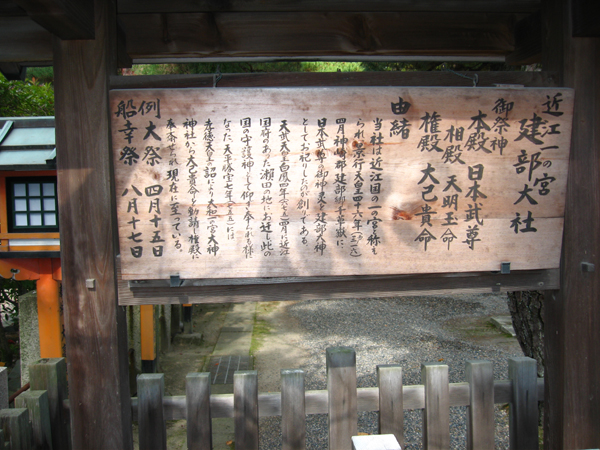 近江一の宮
建部大社
御祭神
本殿 日本武尊
相殿 天明玉命
権殿 大己貴命
由緒
当社は近江国の一の宮と称せ
られ景行天皇四十六年
四月神崎郡建部郷千草嶽に
日本武尊の御神霊を建部大神
としてお祀りしたのが創である
天武天皇白鳳四年(六七五)四月に近江
国府のあった瀬田の地にお遷し此の
国の守護神として仰ぎ奉られる様に
なった天平勝宝七年(七五五)には
孝徳天皇の詔により大和一の宮大神
神社から大己貴命を勧請し権殿に
奉斎せられ現在に至っている。
例大祭 四月十五日
船幸祭 八月十七日